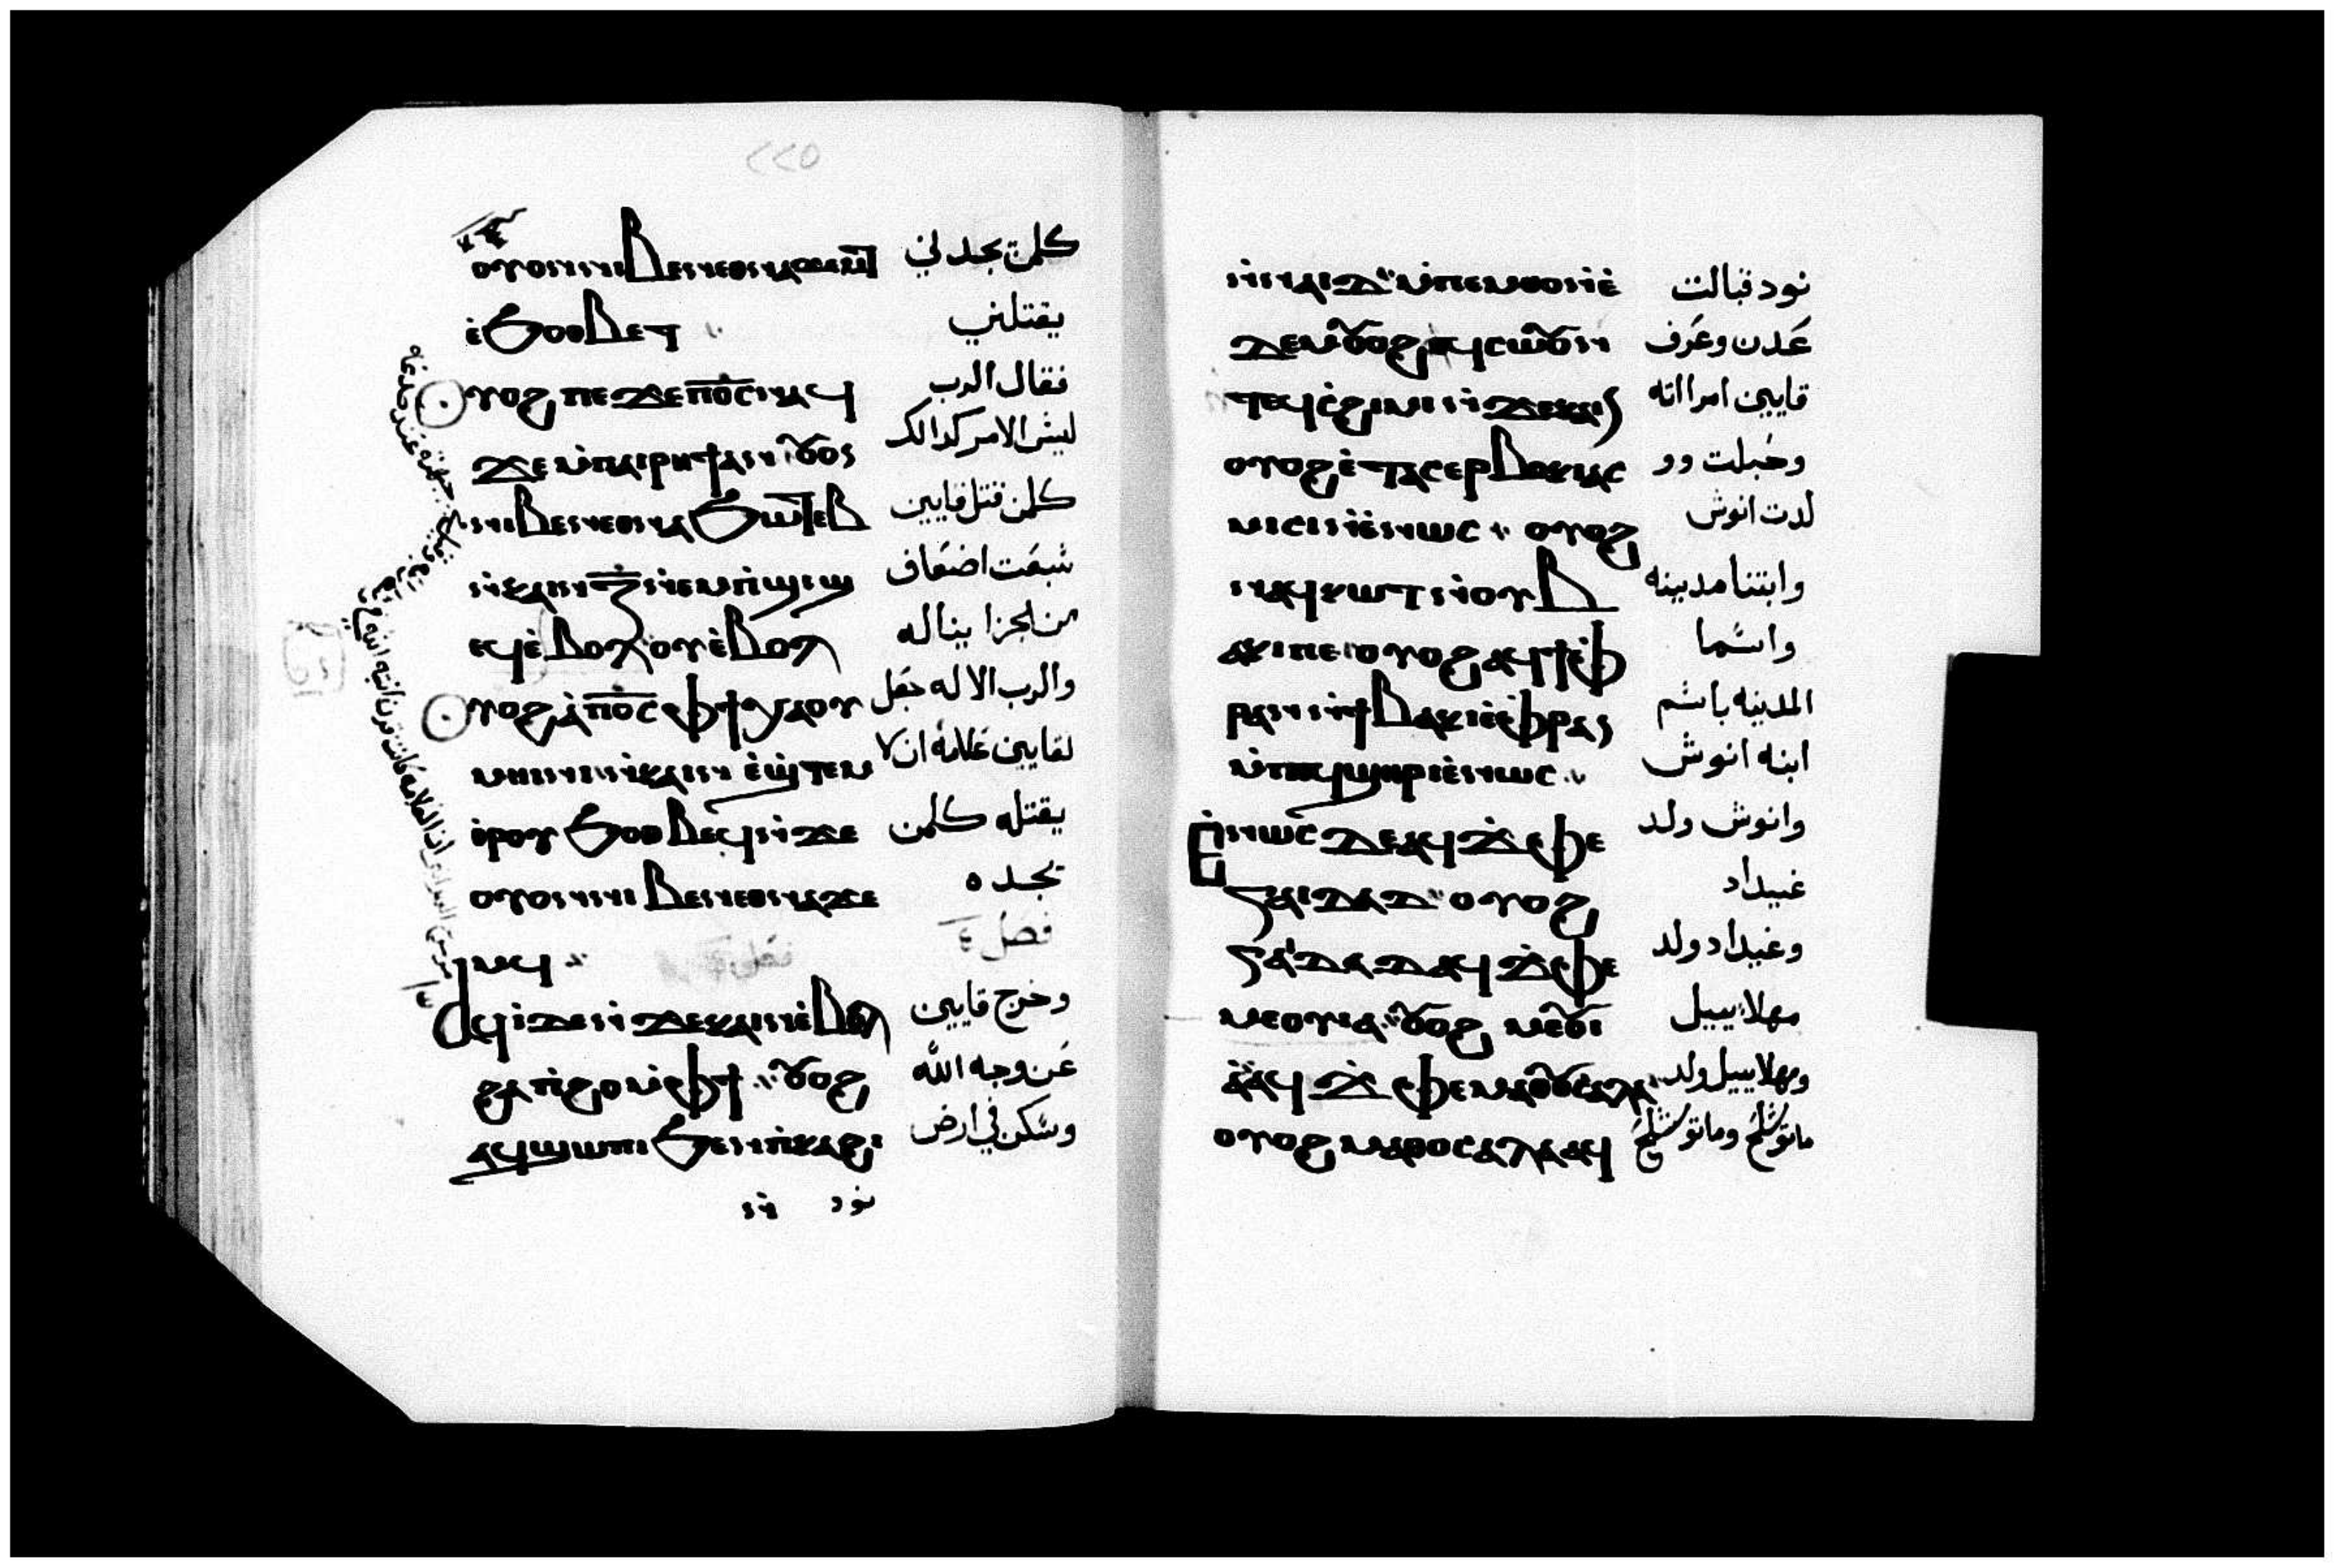 ٢٢٥
ⲟⲩⲟⲛ ⲛⲓⲃⲉⲛ ⲉⲑⲛⲁ كلمن يجدني
ⲉ̀ϧⲟⲑⲃⲉⲧ ⁖ يقتلني
ⲟⲩⲟϩ ⲡⲉϫⲉ ⲡⲟ̅ⲥ̅ ⲛⲁϥ فقال الرب
ϫⲉ ⲙ̀ⲡⲁⲓⲣⲏϯ ⲁⲛ ⲟⲩⲟⲛ ليس الامر كدالك
ⲛⲓⲃⲉⲛ ⲉⲑⲛⲁϧⲱⲧⲉⲃ كلمن قتل قايين
ⲛ̀ⲕⲁⲓⲛ ⲍ̅ ⲛ̀ⲉⲙⲡ̀ϣⲓϣ سبعت اضعاف
ⲉϥⲉ̀ⲃⲟⲗⲟⲩ ⲉ̀ⲃⲟⲗ من الجزا يناله
ⲟⲩⲟϩ ⲁ̀ ⲡⲟ̅ⲥ̅ ⲫϯ ⲭⲁ ⲟⲩ والرب الاله جعل
ⲙⲏⲓⲛⲓ ⲛ̀ⲕⲁⲓⲛ ⲉ̀ϣ̀ⲧⲉⲙ لقايين علامه ان لا
ⲑ̀ⲣⲟⲩϧⲟⲑⲃⲉϥ ⲛ̀ϫⲉ يقتله كلمن
ⲟⲩⲟⲛ ⲛⲓⲃⲉⲛ ⲉⲑⲛⲁϫⲉ يجده
ⲙϥ ⁖ فصل ٤
ⲁϥⲓ̀ ⲇⲉ ⲛ̀ϫⲉ ⲕⲁⲓⲛ ⲉ̀ⲃⲟⲗ وخرج قايين
ϩⲁ ⲡ̀ϩⲟ ⲙ̀ⲫϯ ⁖ ⲟⲩⲟϩ عن وجه الله
ⲁϥϣⲱⲡⲓ ϧⲉⲛ ⲡ̀ⲕⲁϩⲓ وسكن في ارض
ⲛ̀ⲛ نود
ⲛ̀ⲛⲁⲓⲇ ⁖ ⲙ̀ⲡⲉⲙⲑⲟ ⲛ̀ⲉ̀ نود قبالت
ⲇⲉⲙ ⲟⲩⲟϩ ⲁϥⲥⲟⲩⲱⲛ عدن وعرف
ⲧⲉϥⲥ̀ϩⲓⲙⲓ ⲛ̀ϫⲉ ⲕⲁⲓⲛ قايين امراته
ⲟⲩⲟϩ ⲉ̀ⲧⲁⲥⲉⲣⲃⲟⲕⲓ ⲁⲥ وحبلت وو
ⲙⲓⲥⲓ ⲛ̀ⲉ̀ⲛⲱⲥ ⁖ ⲟⲩⲟϩ لدت انوش
ⲛⲁϥⲕⲱⲧ ⲛ̀ⲟⲩⲃ وابتنا مدينه
ⲁⲕⲓ ⲡⲉ ⲟⲩⲟϩ ⲁϥϯ ⲉ̀ⲫ واسما
ⲣⲁⲛ ⲛ̀ϯⲃⲁⲕⲓ ⲉ̀ⲫⲣⲁⲛ المدينه باسم
ⲙ̀ⲡⲉϥϣⲏⲣⲓ ⲉ̀ⲛⲱⲥ ⁖ ابنه انوش
ⲉ̀ⲛⲱⲥ ⲇⲉ ⲁϥϫ̀ⲫⲉ وانوش ولد
ⲅⲁⲓⲇⲁⲇ ⁖ ⲟⲩⲟϩ غيداد
ⲅⲁⲇⲁⲇ ⲁϥϫ̀ⲫⲉ وغيداد ولد
ⲙⲉⲟⲩⲓⲁ ⁖ ⲟⲩⲟϩ ⲙⲉⲟⲩⲓ مهلاييل
ⲁ̀ ⲁϥϫ̀ⲫⲉ ⲙⲁⲑⲟⲩⲥⲁⲗⲁ ومهلاييل ولد
ⲟⲩⲟϩ ⲙⲁⲑⲟⲩⲥⲁⲗⲁ ⲁϥ ماتوشلح وماتوشلح